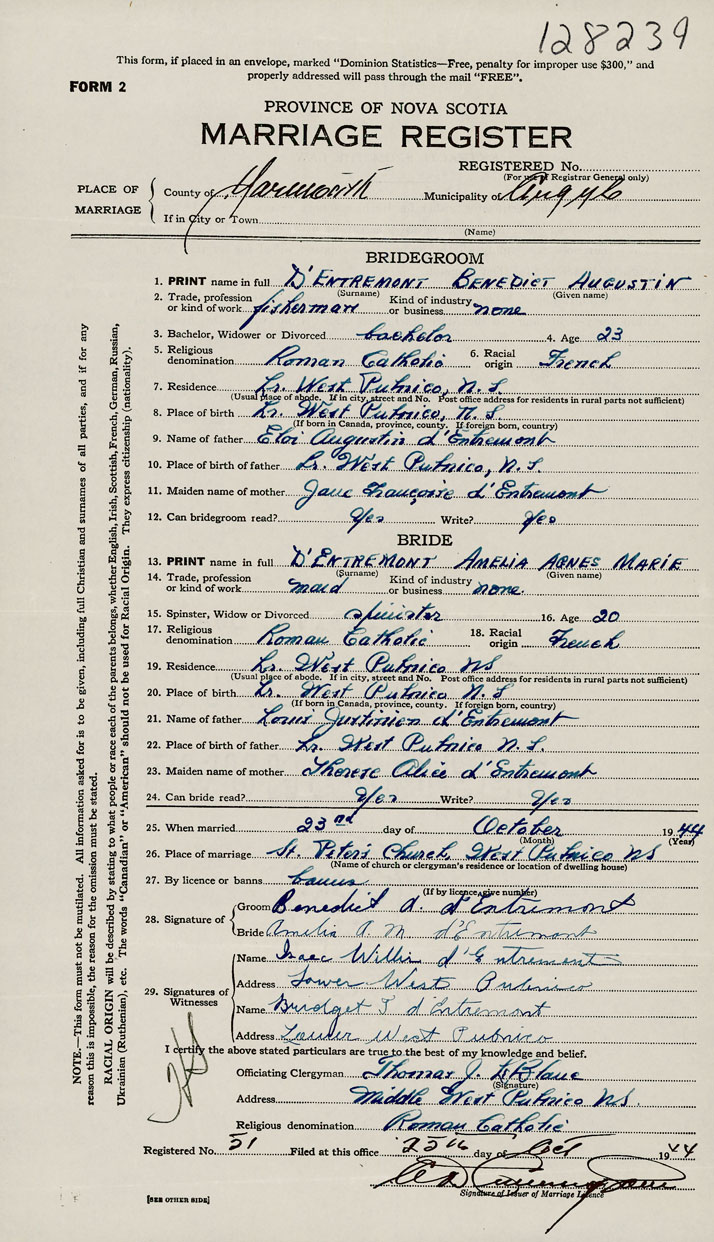 128239
This form, if placed in an envelope, marked "Dominion Statistics—Free, penalty for improper use $300," and
properly addressed will pass through the mail "FREE".
FORM 2
PROVINCE OF NOVA SCOTIA
MARRIAGE REGISTER
REGISTERED No.
(For use of Registrar General only)
PLACE OF MARRIAGE
County of Yarmouth Municipality of Argyle
If in City or Town
(Name)
BRIDEGROOM
1. PRINT name in full D'ENTREMONT BENEDICT AUGUSTIN
(Surname) (Given name)
2. Trade, profession or kind of work fisherman Kind of industry or business none
3. Bachelor, Widower or Divorced bachelor 4. Age 23
5. Religious denomination Roman Catholic 6. Racial origin French
7. Residence Lr. West Pubnico, N.S
(Usual place of abode. If in city, street and No. Post office address for residents in rural parts not sufficient)
8. Place of birth Lr. West Pubnico, N.S.
(If born in Canada, province, county. If foreign born, country)
9. Name of father Eloi Augustin d'Entremont
10. Place of birth of father Lr. West Pubnico, N.S.
11. Maiden name of mother Jane Françoise d'Entremont
12. Can bridegroom read? Yes Write? Yes
BRIDE
13. PRINT name in full D'ENTREMONT AMELIA AGNES MARIE
(Surname) (Given name)
14. Trade, profession or kind of work maid Kind of industry or business none.
15. Spinster, Widow or Divorced spinster 16. Age 20
17. Religious denomination Roman Catholic 18. Racial origin French
19. Residence Lr. West Pubnico NS
(Usual place of abode. If in city, street and No. Post office address for residents in rural parts not sufficient)
20. Place of birth Lr. West Pubnico N.S
(If born in Canada, province, county. If foreign born, country)
21. Name of father Louis Justinien d'Entremont
22. Place of birth of father Lr. West Pubnico N.S.
23. Maiden name of mother Therese Alice d'Entremont
24. Can bride read? Yes Write? Yes
25. When married 23nd day of October 1944
(Month) (Year)
26. Place of marriage St. Peter's Church, West Pubnico NS
(Name of church or clergyman's residence or location of dwelling house)
27. By licence or banns banns
(If by licence, give number)
28. Signature of
Groom Benedict A. d'Entremont
Bride Amelia A.M. d'Entremont
29. Signatures of Witnesses
Name Isaac Willis d'Entremont
Address Lower West Pubnico
Name Bridget T d'Entremont
Address Lower West Pubnico
I certify the above stated particulars are true to the best of my knowledge and belief.
Officiating Clergyman Thomas J. LeBlanc
(Signature)
Address Middle West Pubnico NS.
Religious denomination Roman Catholic
Registered No. 51 Filed at this office 25th day of Oct 1944
Signature of Issuer of Marriage Licence
[SEE OTHER SIDE]
NOTE.—This form must not be mutilated. All information asked for is to be given, including full Christian and surnames of all parties, and if for any
reason this is impossible, the reason for the omission must be stated.
RACIAL ORIGIN will be described by stating to what people or race each of the parents belongs, whether English, Irish, Scottish, French, German, Russian,
Ukrainian (Ruthenian), etc. The words "Canadian" or "American" should not be used for Racial Origin. They express citizenship (nationality).